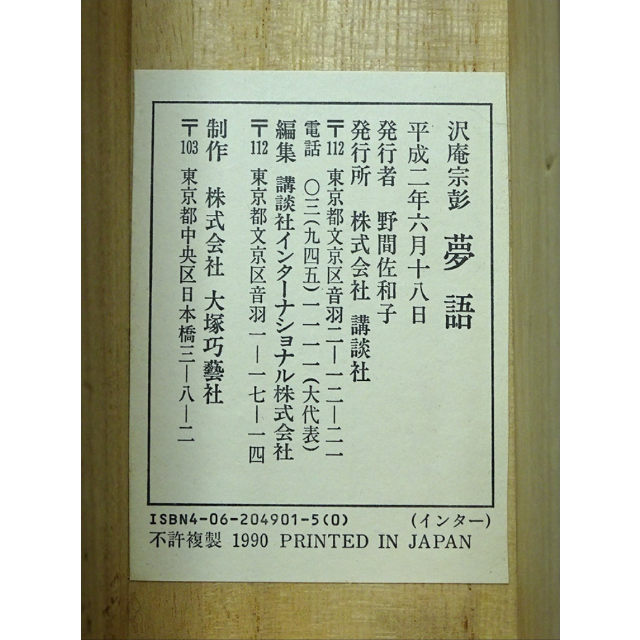 沢庵宗彭 夢語
平成二年六月十八日
発行者 野間佐和子
発行所 株式会社 講談社
〒112 東京都文京区音羽二―一二―二一
電話 〇三(九四五)一一一一(大代表)
編集 講談社インターナショナル株式会社
〒112 東京都文京区音羽一―一七―一四
制作 株式会社 大塚巧藝社
〒103 東京都中央区日本橋三―八―二
ISBN4-06-204901-5(0) (インター)
不許複製 1990 PRINTED IN JAPAN